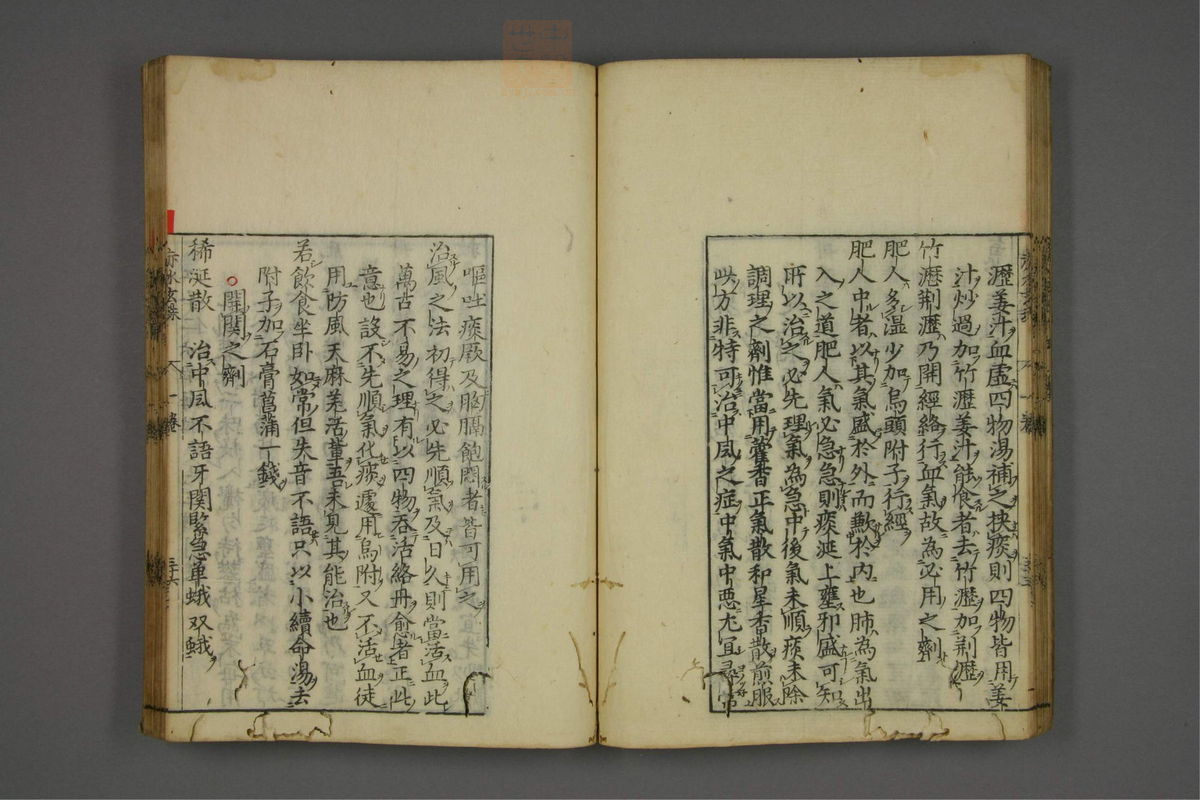 瀝姜汁血虛四物湯補之挾痰則四物皆用姜
汁炒過加竹瀝姜汁能食者去竹瀝加荆瀝
竹瀝荆瀝乃開經絡行血氣故為必用之劑
肥人多湿少加烏頭附子行經
肥人中者以其氣盛於外而歉於内也肺為氣出
入之道肥人氣必急急則痰涎上壅邪盛可知
所以治之必先理氣為急中後氣未順痰未除
調理之劑惟當用藿香正氣散和星香散煎服
此方非特可治中風之症中氣中悪尤宜尋常
嘔吐痰厥及胸膈飽悶者皆可用之
治風之法初得之必先順氣及日久則當活血此
萬古不易之理有以四物吞活絡丹愈者正此
意也設不先順氣化痰遽用烏附又不活血徒
用防風天麻羌活軰吾未見其能治也
若飲食坐卧如常但失音不語只以小續命湯去
附子加石膏菖蒲一錢
○開関之劑
稀涎散 治中風不語牙関緊急单蛾双蛾